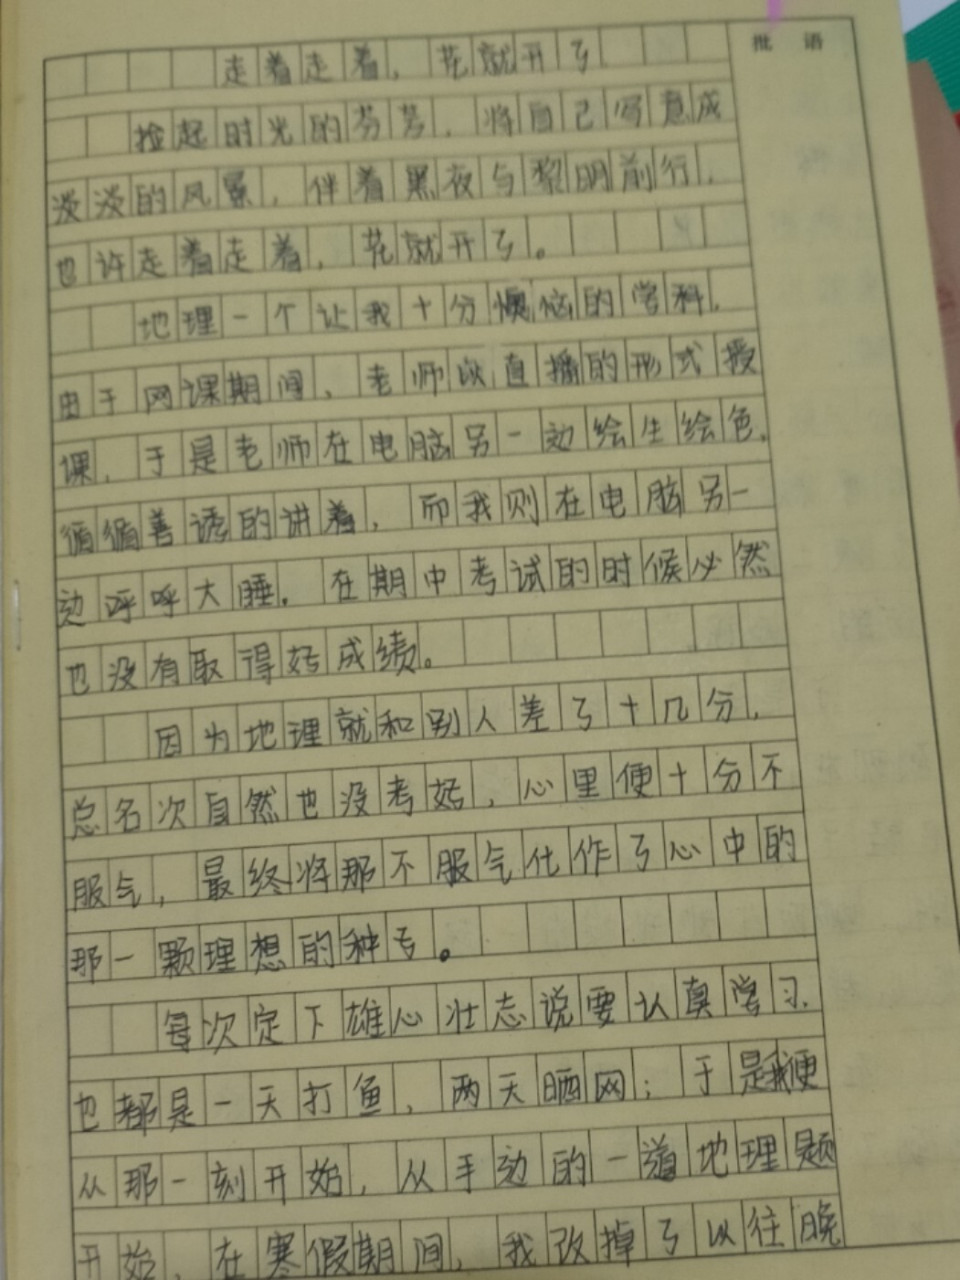 批 语
走着走着，花就开了
捡起时光的芬芳，将自己写意成
淡淡的风景，伴着黑夜与黎明前行，
也许走着走着，花就开了。
地理一个让我十分懊恼的学科，
由于网课期间，老师以直播的形式授
课，于是老师在电脑另一边绘生绘色，
循循善诱的讲着，而我则在电脑另一
边呼呼大睡。在期中考试的时候必然
也没有取得好成绩。
因为地理就和别人差了十几分，
总名次自然也没考好，心里便十分不
服气，最终将那不服气化作了心中的
那一颗理想的种子。
每次定下雄心壮志说要认真学习，
也都是一天打鱼，两天晒网；于是我便
从那一刻开始，从手边的一道地理题
开始，在寒假期间，我改掉了以往晚